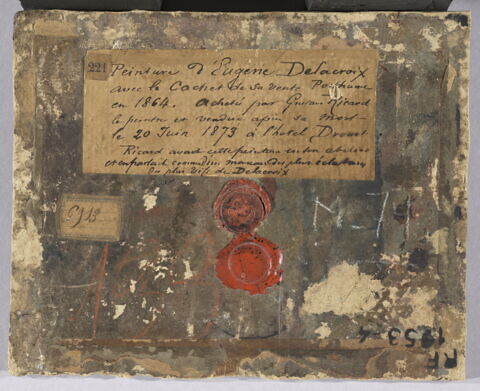 221
Peinture d'Eugene Delacroix
avec le Cachet de sa vente Posthume
en 1864. acheté par Gustave Ricard
le peintre et vendue après sa mort
le 20 Juin 1873 à l'hotel Drouot
Ricard avait cette peinture en son atelier
et en parlait comme d'un morceau des plus
du plus de Delacroix
M-71
RF
1953-4